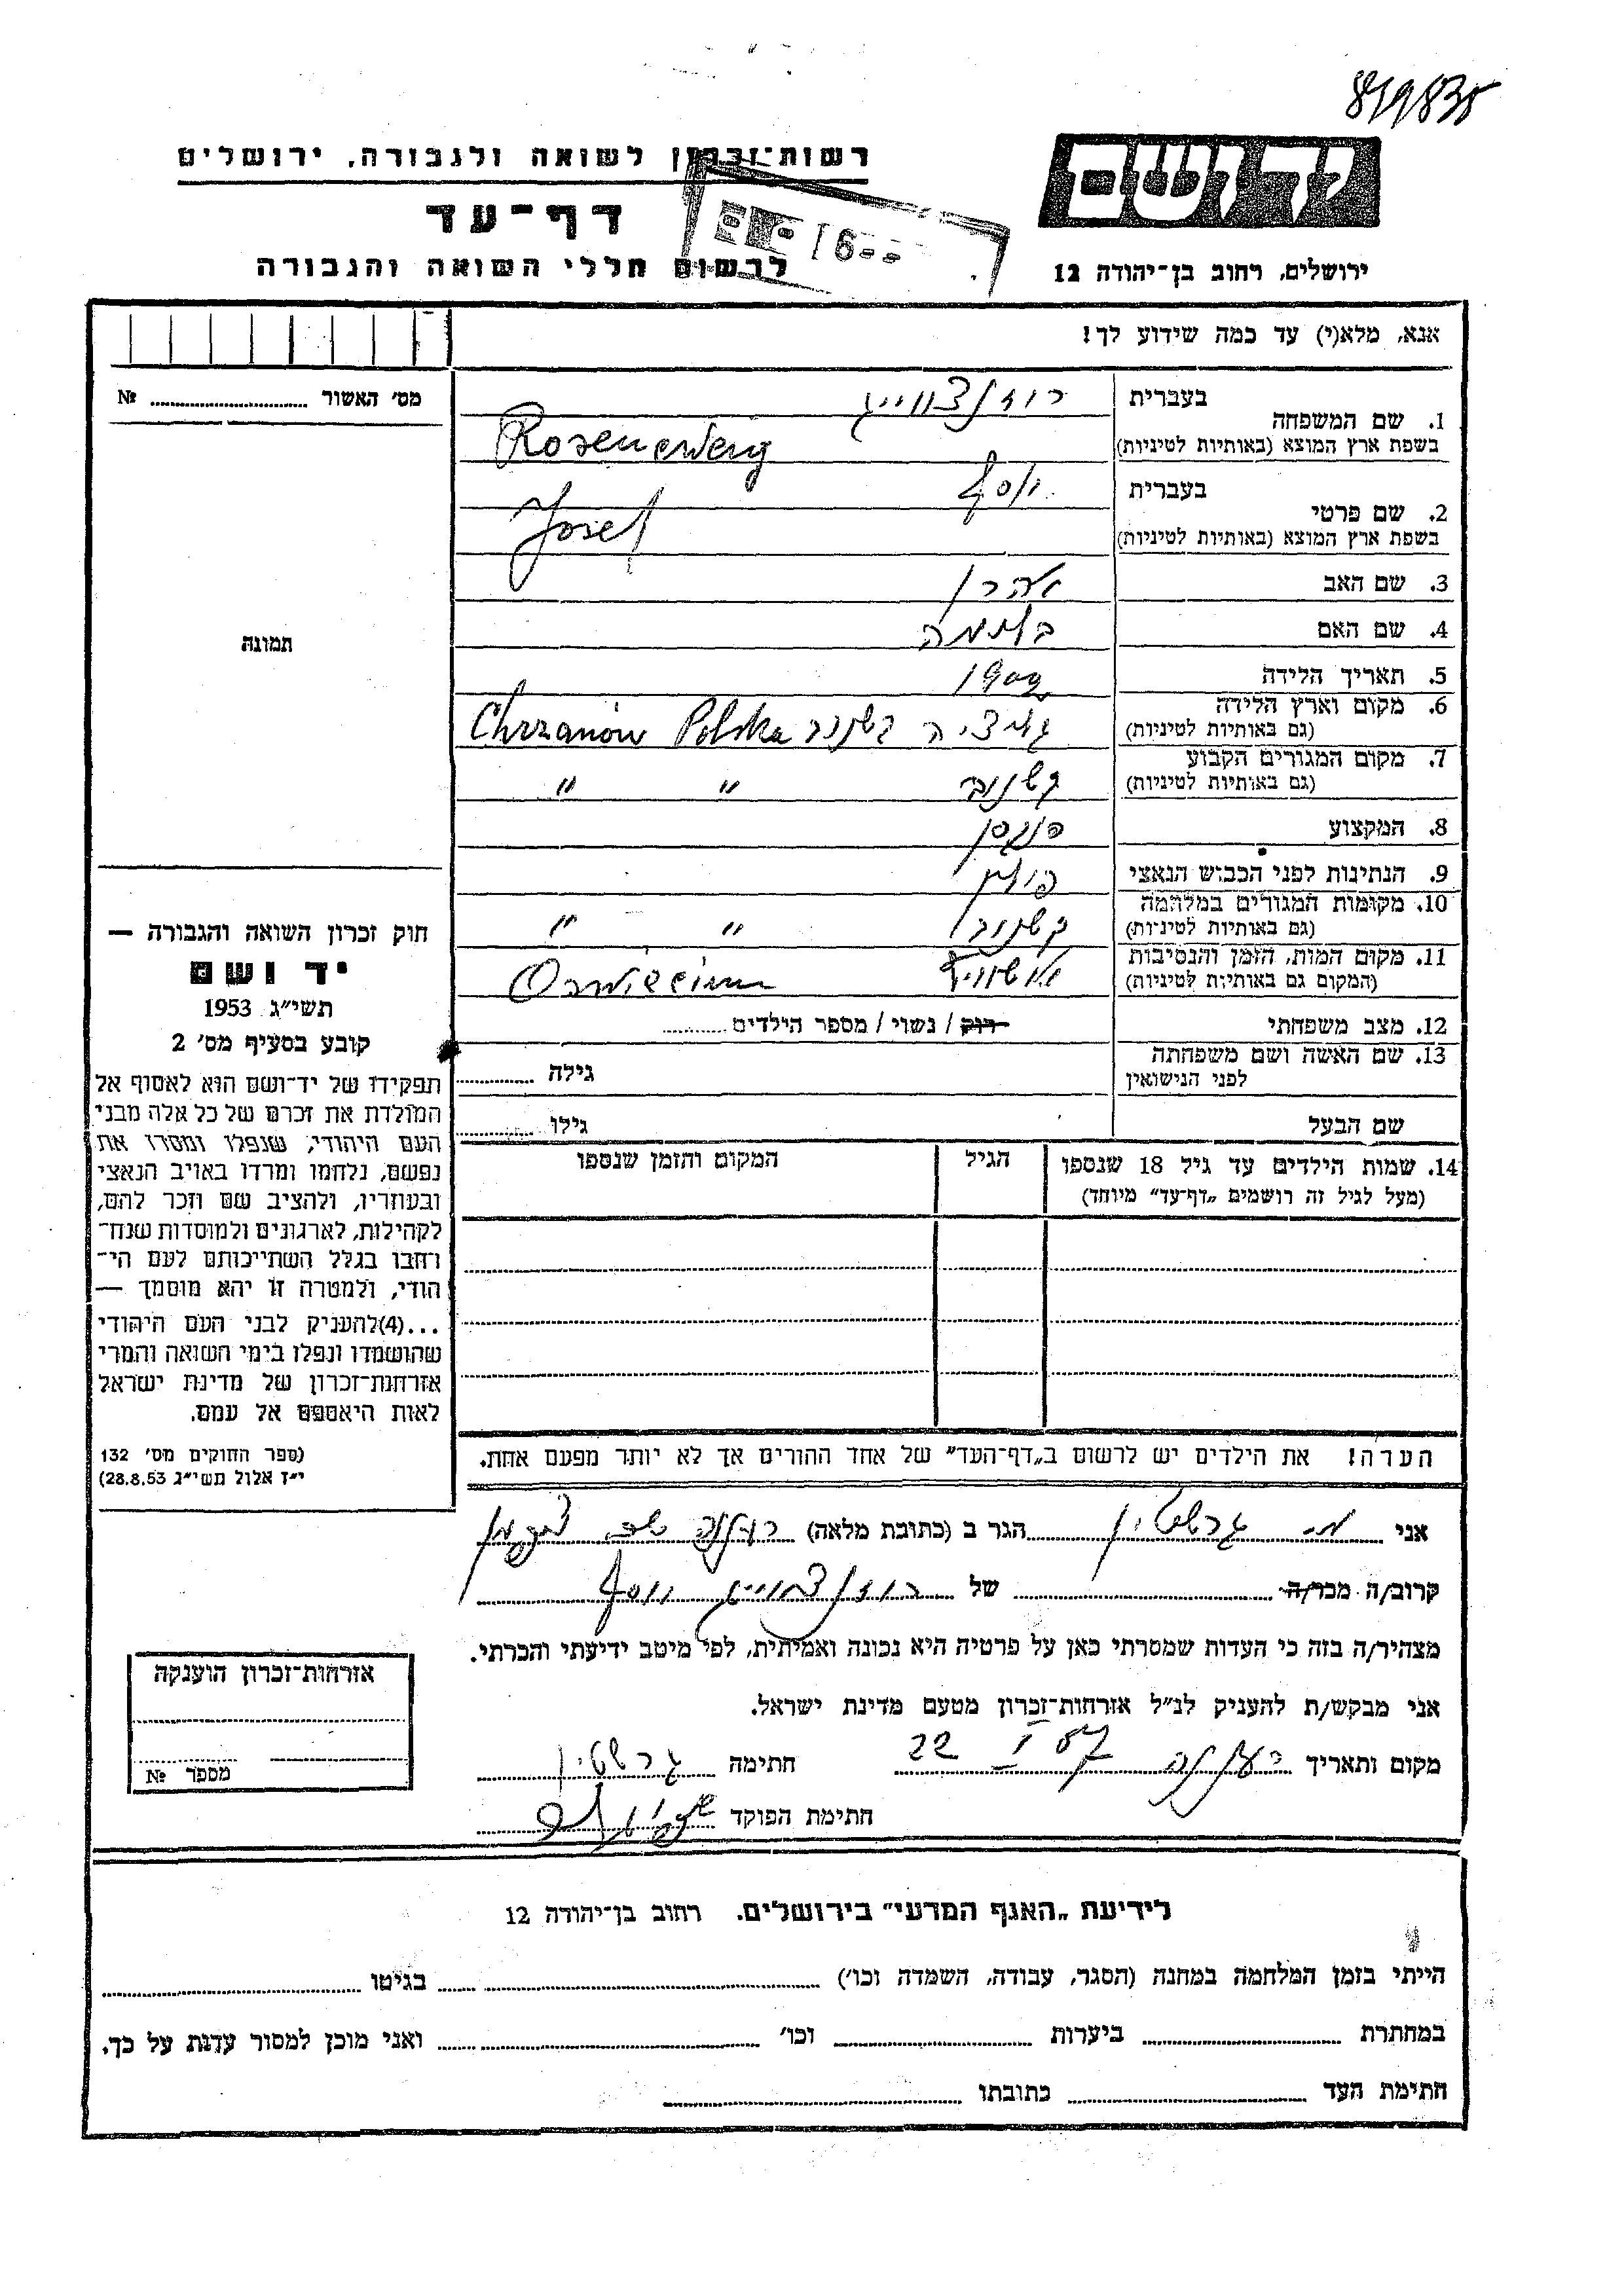 819835
יד ושם
רשות־זכרון לשואה ולגבורה, ירושלים
דף־עד
לרשום חללי השואה והגבורה
ירושלים, רחוב בן־יהודה 12
אנא, מלא(י) עד כמה שידוע לך!
מס' האשור № ........
1. שם המשפחה
בעברית רוזנצווייג
בשפת ארץ המוצא (באותיות לטיניות) Rosenzweig
2. שם פרטי
בעברית יוסף
בשפת ארץ המוצא (באותיות לטיניות) Josef
3. שם האב אהרן
4. שם האם
5. תאריך הלידה 1909
6. מקום וארץ הלידה
(גם באותיות לטיניות) גליציה Chrzanów Polska
7. מקום המגורים הקבוע
(גם באותיות לטיניות) " "
8. המקצוע
9. הנתינות לפני הכבוש הנאצי פולין
10. מקומות המגורים במלחמה
(גם באותיות לטיניות) " "
11. מקום המות, הזמן והנסיבות
(המקום גם באותיות לטיניות) אושוויץ
12. מצב משפחתי רוק / נשוי / מספר הילדים ........
13. שם האשה ושם משפחתה
לפני הנישואין
גילה ........
שם הבעל
גילו ........
14. שמות הילדים עד גיל 18 שנספו
(מעל לגיל זה רושמים „דף־עד" מיוחד)
הגיל
המקום והזמן שנספו
הערה! את הילדים יש לרשום ב„דף־העד" של אחד ההורים אך לא יותר מפעם אחת.
תמונה
חוק זכרון השואה והגבורה —
יד ושם
תשי"ג 1953
קובע בסעיף מס' 2
תפקידו של יד־ושם הוא לאסוף אל
המולדת את זכרם של כל אלה מבני
העם היהודי, שנפלו ומסרו את
נפשם, נלחמו ומרדו באויב הנאצי
ובעוזריו, ולהציב שם וזכר להם,
לקהילות, לארגונים ולמוסדות שנח־
רחבו בגלל השתייכותם לעם הי־
הודי, ולמטרה זו יהא מוסמך —
...(4)להעניק לבני העם היהודי
שהושמדו ונפלו בימי השואה והמרי
אזרחות־זכרון של מדינת ישראל
לאות היאספם אל עמם.
(ספר החוקים מס' 132
י"ז אלול תשי"ג 28.8.53)
אני גרשטיין הגר ב (כתובת מלאה) רעננה
קרוב/ה מכר/ה ........ של רוזנצווייג יוסף
מצהיר/ה בזה כי העדות שמסרתי כאן על פרטיה היא נכונה ואמיתית, לפי מיטב ידיעתי והכרתי.
אני מבקש/ת להעניק לנ"ל אזרחות־זכרון מטעם מדינת ישראל.
מקום ותאריך רעננה 22 I 57 חתימה גרשטיין
חתימת הפוקד
אזרחות־זכרון הוענקה
מספר №
לידיעת „האגף המדעי" בירושלים. רחוב בן־יהודה 12
הייתי בזמן המלחמה במחנה (הסגר, עבודה, השמדה וכו') ........ בגיטו ........
במחתרת ........ ביערות ........ וכו' ........ ואני מוכן למסור עדות על כך.
חתימת העד ........ כתובתו ........